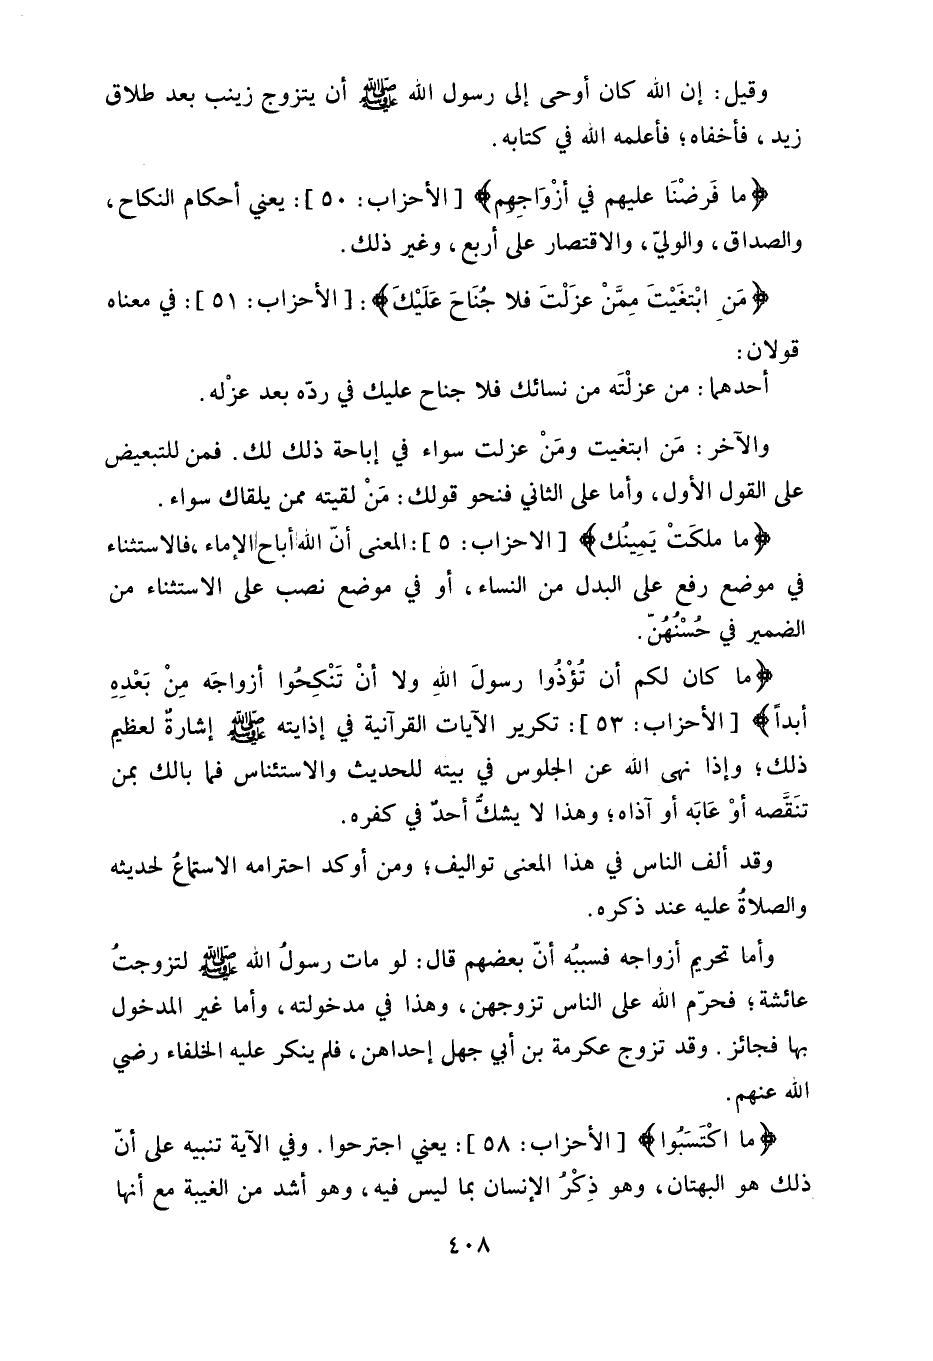 وقيل: إن الله كان أوحى إلى رسول الله ﷺ أن يتزوج زينب بعد طلاق
زيد، فأخفاه؛ فأعلمه الله في كتابه.
﴿ما فَرضْنَا عليهم في أزْوَاجِهِم﴾ [الأحزاب: ٥٠]: يعني أحكام النكاح،
والصداق، والوليّ، والاقتصار على أربع، وغير ذلك.
﴿مَنِ ابْتغَيْتَ مِمَّنْ عزَلْتَ فلا جُنَاحَ عَلَيْكَ﴾: [الأحزاب: ٥١]: في معناه
قولان:
أحدهما: من عزلْتَه من نسائك فلا جناح عليك في ردّه بعد عزْله.
والآخر: مَن ابتغيت ومَنْ عزلت سواء في إباحة ذلك لك. فمن للتبعيض
على القول الأول، وأما على الثاني فنحو قولك: مَنْ لقيته ممن يلقاك سواء.
﴿ما ملكَتْ يَمِينُك﴾ [الاحزاب: ٥]: المعنى أنّ الله أباح الإماء، فالاستثناء
في موضع رفع على البدل من النساء، أو في موضع نصب على الاستثناء من
الضمير في حُسْنُهُنّ.
﴿ما كان لكم أن تُؤْذُوا رسولَ اللهِ ولا أنْ تَنْكِحُوا أزواجَه مِنْ بَعْدِهِ
أبداً﴾ [الأحزاب: ٥٣]: تكرير الآيات القرآنية في إذايته ﷺ إشارةٌ لعظيم
ذلك؛ وإذا نهى الله عن الجلوس في بيته للحديث والاستئناس فما بالك بمن
تنَقَّصه أوْ عَابَه أو آذاه؛ وهذا لا يشكُّ أحدٌ في كفره.
وقد ألف الناس في هذا المعنى تواليف؛ ومن أوكد احترامه الاستماعُ لحديثه
والصلاةُ عليه عند ذكره.
وأما تحريم أزواجه فسببُه أنّ بعضهم قال: لو مات رسولُ الله ﷺ لتزوجتُ
عائشة؛ فحرّم الله على الناس تزوجهن، وهذا في مدخولته، وأما غير المدخول
بها فجائز. وقد تزوج عكرمة بن أبي جهل إحداهن، فلم ينكر عليه الخلفاء رضي
الله عنهم.
﴿ما اكْتَسَبُوا﴾ [الأحزاب: ٥٨]: يعني اجترحوا. وفي الآية تنبيه على أنّ
ذلك هو البهتان، وهو ذِكْرُ الإنسان بما ليس فيه، وهو أشد من الغيبة مع أنها
٤٠٨